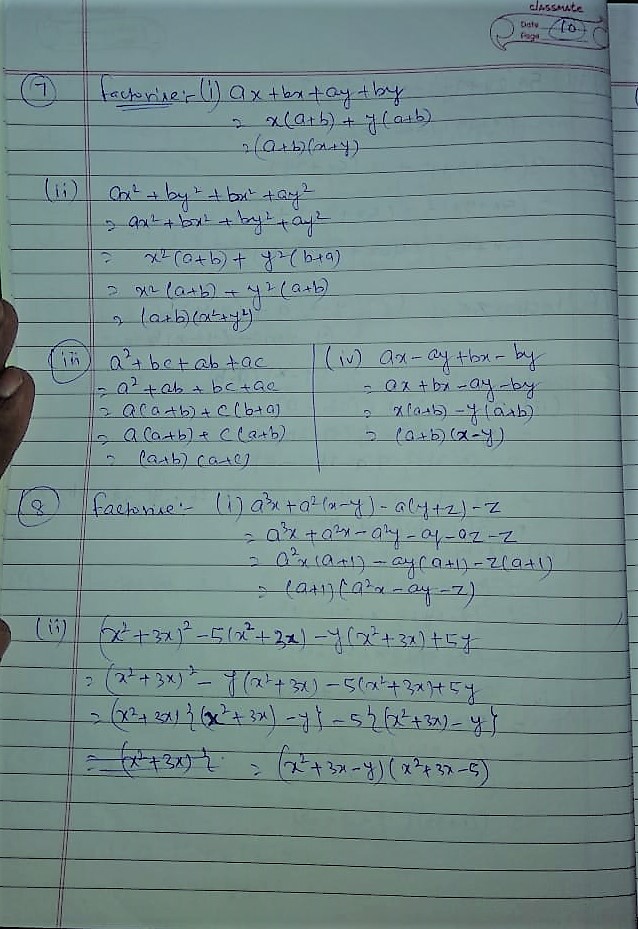 classmate
Date
Page 10
7 Factorise:- (i) ax+bx+ay+by
= x(a+b) + y(a+b)
= (a+b)(x+y)
(ii) ax² + by² + bx² + ay²
= ax² + bx² + by² + ay²
= x²(a+b) + y²(b+a)
= x²(a+b) + y²(a+b)
= (a+b)(x²+y²)
(iii) a²+bc+ab+ac
= a²+ab+bc+ac
= a(a+b)+c(b+a)
= a(a+b)+c(a+b)
= (a+b)(a+c)
(iv) ax-ay+bx-by
= ax+bx-ay-by
= x(a+b)-y(a+b)
= (a+b)(x-y)
8 Factorise:- (i) a³x+a²(x-y)-a(y+z)-z
= a³x+a²x-a²y-ay-az-z
= a²x(a+1)-ay(a+1)-z(a+1)
= (a+1)(a²x-ay-z)
(ii) (x²+3x)²-5(x²+3x)-y(x²+3x)+5y
= (x²+3x)²-y(x²+3x)-5(x²+3x)+5y
= (x²+3x){(x²+3x)-y}-5{(x²+3x)-y}
= (x²+3x){ = (x²+3x-y)(x²+3x-5)